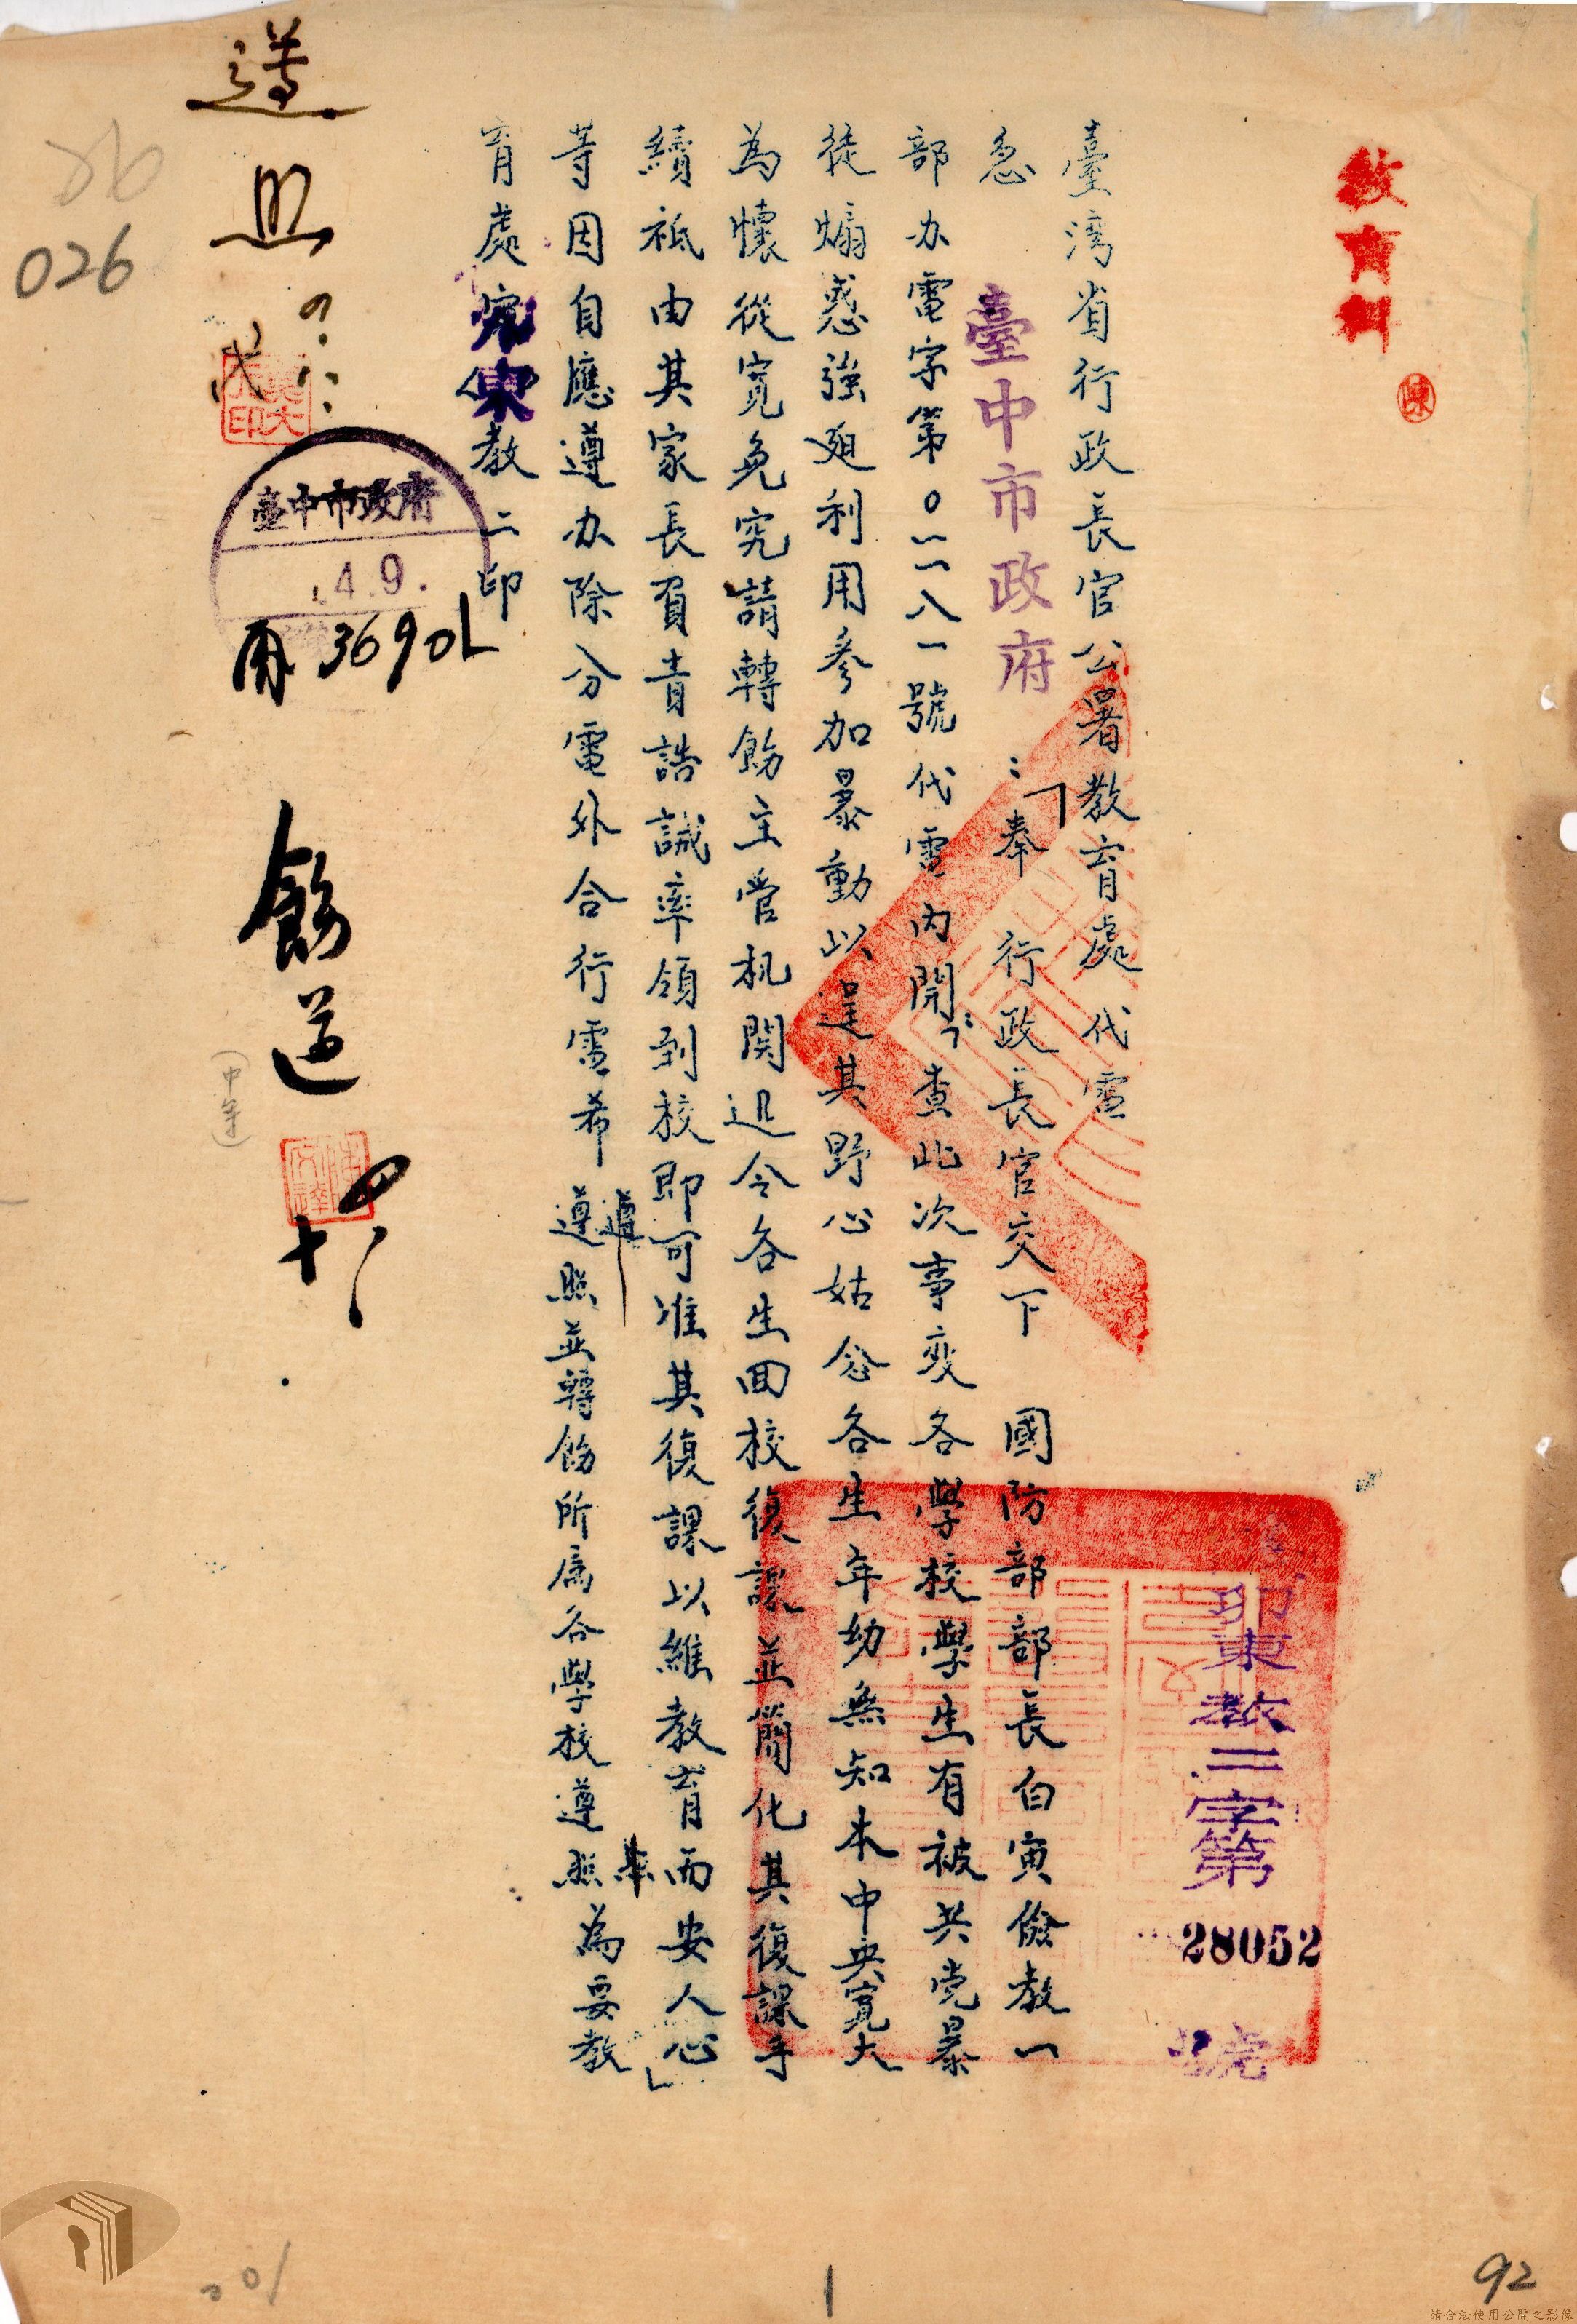 教育科
陳
卯東教二字第
28052
號
臺湾省行政長官公署教育處代電
急 臺中市政府：「奉 行政長官交下 國防部部長白寅儉教一
部办電字第〇一一八一號代電內開：「查此次事変各學校學生有被共党暴
徒煽惑強廹利用參加暴動以逞其野心姑念各生年幼無知本中央寬大
為懷從寬免究請轉飭主管机関迅令各生回校復課並簡化其復課手
續祗由其家長負責誥誡率領到校即可准其復課以維教育而安人心」
等因自應遵办除分電外合行電希 遵照並轉飭所屬各學校遵照為要教
育處 東教二印
遵照
臺中市政府
4.9.
36901
飭遵
十
(中等)
026
201
1
92
請合法使用公開之影像